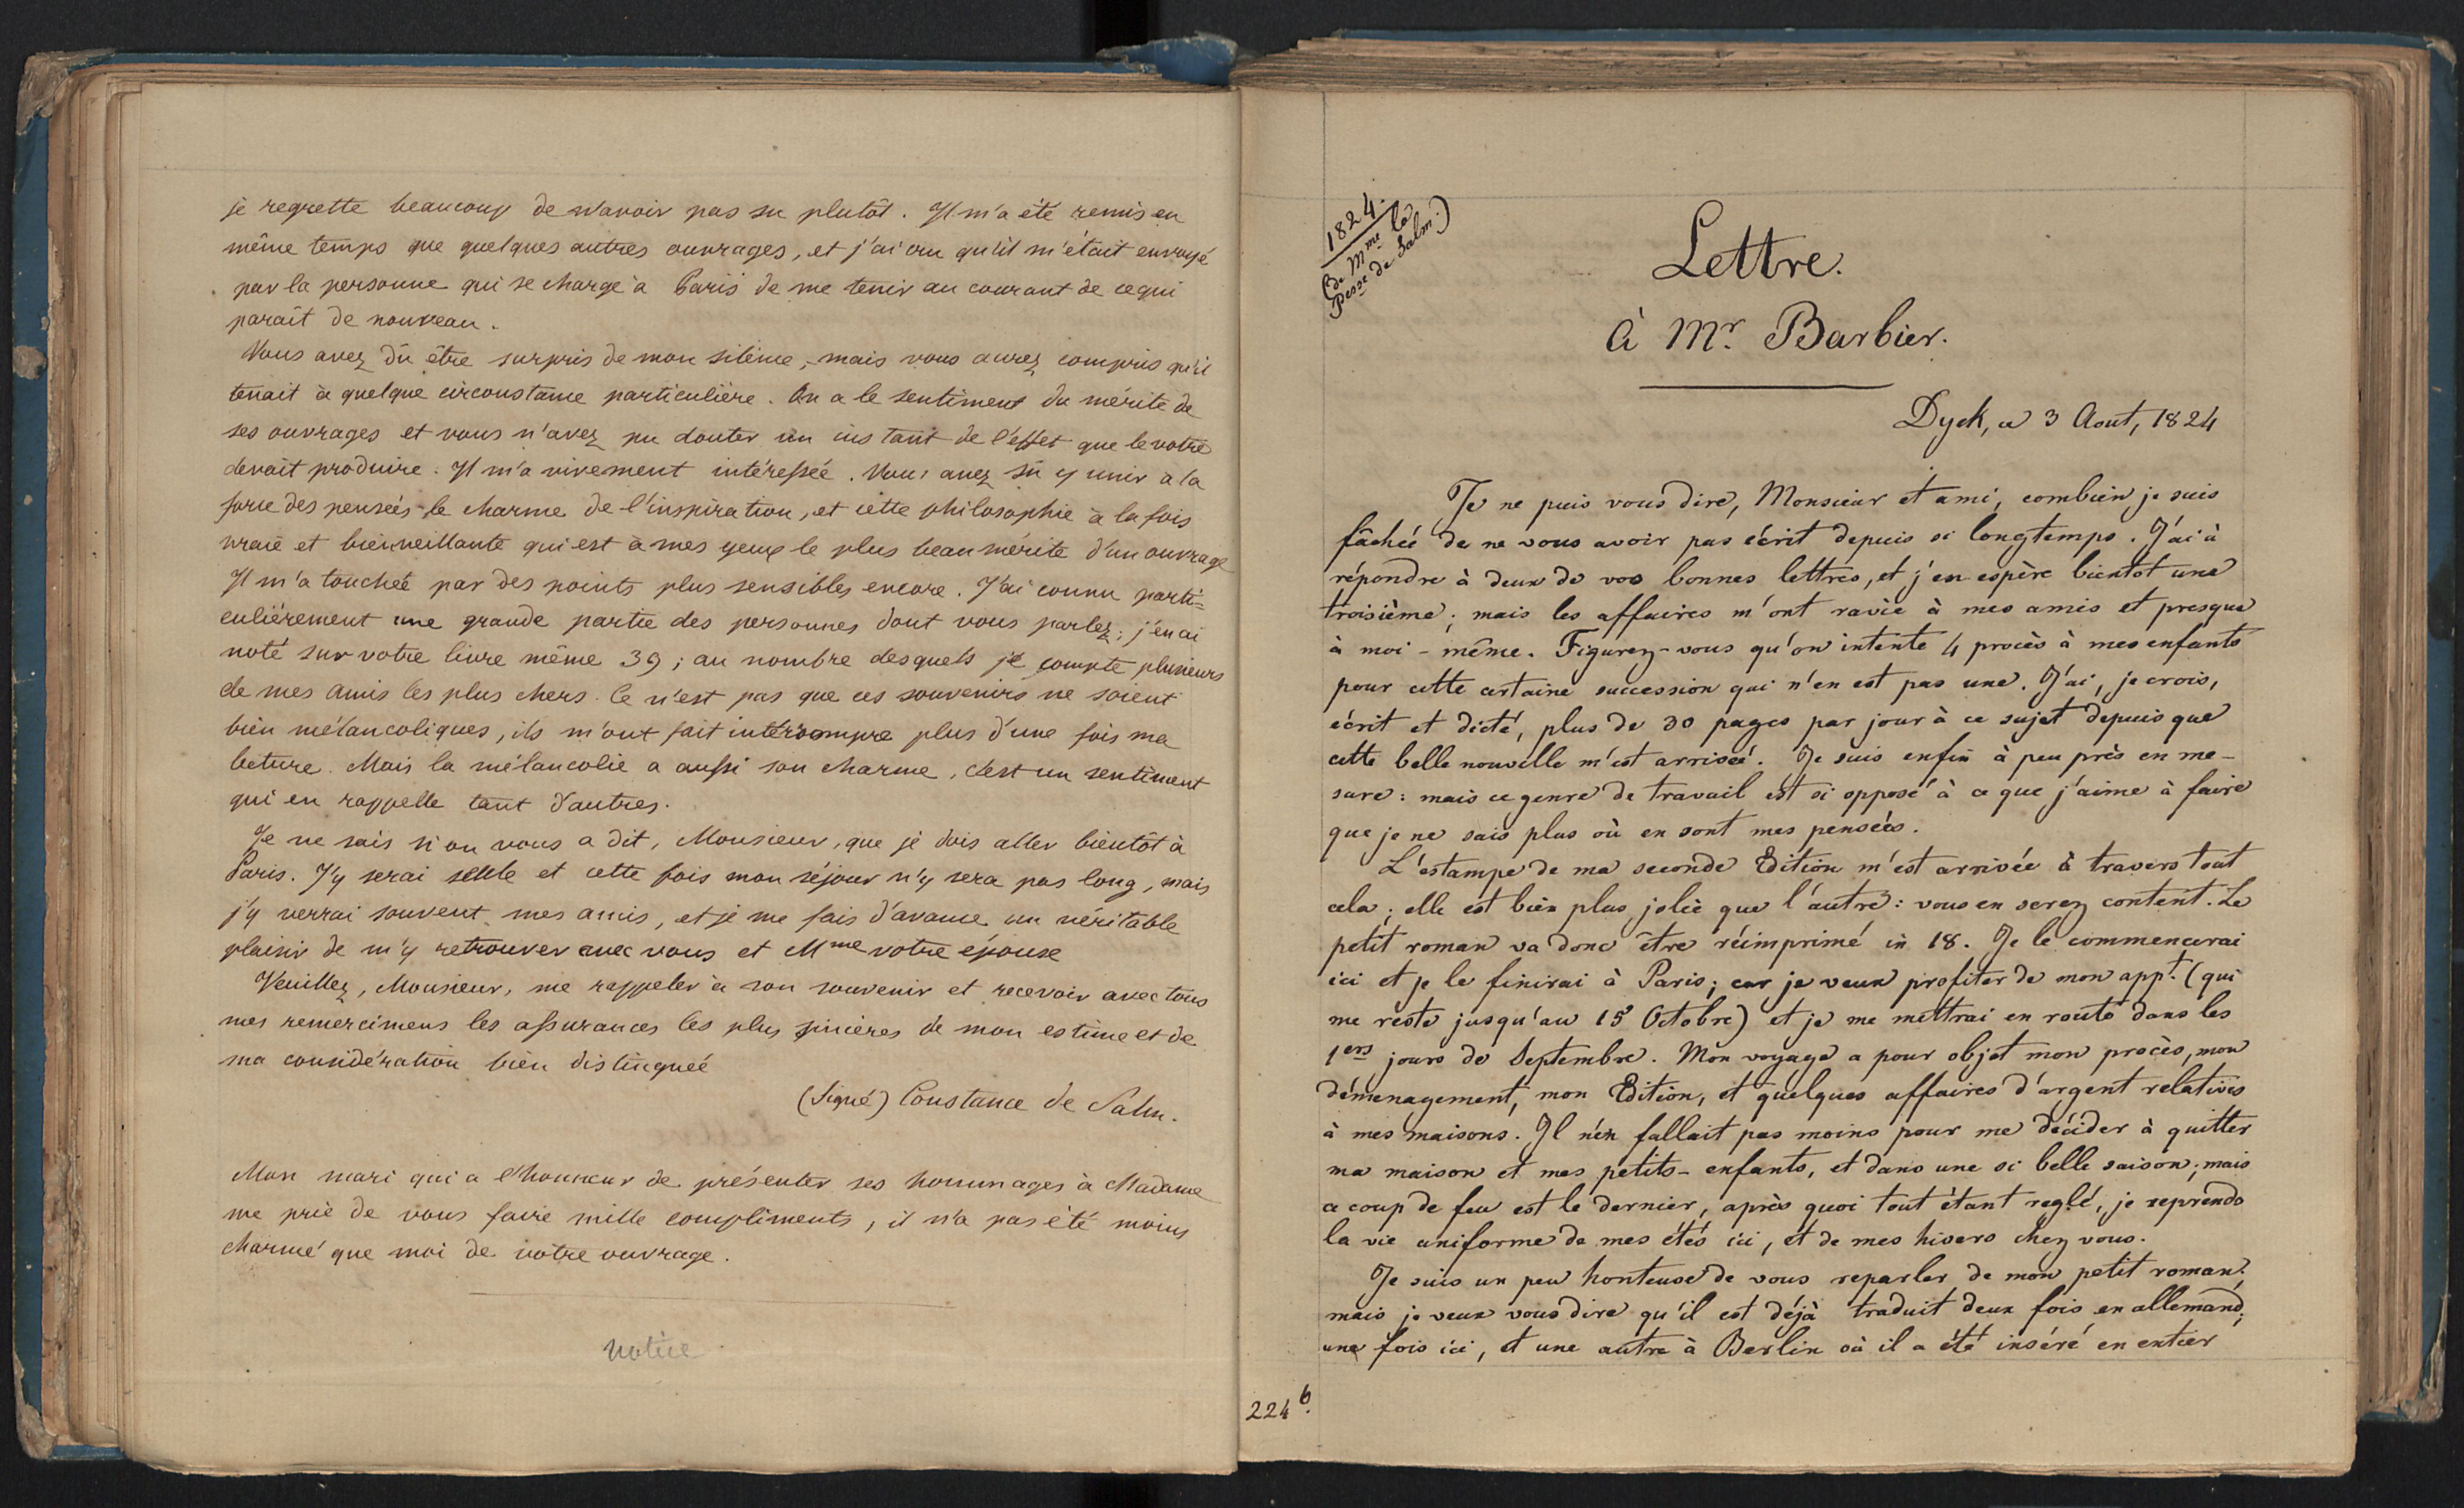 je regrette beaucoup de n'avoir pas su plutôt. Il m'a été remis en
même temps que quelques autres ouvrages, et j'ai cru qu'il m'était envoyé
par la personne qui se charge à Paris de me tenir au courant de ce qui
parait de nouveau.
Vous avez dû être surpris de mon silence, mais vous aurez compris qu'il
tenait à quelque circonstance particulière. On a le sentiment du mérite de
ses ouvrages et vous n'avez pu douter un instant de l'effet que le votre
devait produire. Il m'a vivement intéressée. Vous avez sû y unir a la
force des pensées le charme de l'inspiration, et cette philosophie à la fois
vraie et bienveillante qui est à mes yeux le plus beau mérite d'un ouvrage
Il m'a touchée par des points plus sensibles encore. J'ai connu parti=
culièrement une grande partie des personnes dont vous parlez; j'en ai
noté sur votre livre même 39; au nombre desquels je compte plusieurs
de mes amis les plus chers. Ce n'est pas que ces souvenirs ne soient
bien mélancoliques, ils m'ont fait interrompre plus d'une fois ma
lecture. Mais la mélancolie a aussi son charme, c'est un sentiment
qui en rappelle tant d'autres.
Je ne sais si on vous a dit, Monsieur, que je dois aller bientôt à
Paris. J'y serai seule et cette fois mon séjour n'y sera pas long, mais
j'y verrai souvent mes amis, et je me fais d'avance un véritable
plaisir de m'y retrouver avec vous et Mme votre épouse
Veuillez, Monsieur, me rappeler à son souvenir et recevoir avec tous
mes remercimens les assurances les plus sincères de mon estime et de
ma considération bien distinguée
(Signé) Constance de Salm.
Mon mari qui a l'honneur de présenter ses hommages à Madame
me prie de vous faire mille compliments, il n'a pas été moins
charmé que moi de votre ouvrage.
notice
1824.
(de Mme la
Pesse de Salm.)
Lettre.
À Mr. Barbier.
Dyck, ce 3 Aout, 1824
Je ne puis vous dire, Monsieur et ami, combien je suis
fâchée de ne vous avoir pas écrit depuis si longtemps. J'ai à
répondre à deux de vos bonnes lettres, et j'en espère bientot une
troisième; mais les affaires m'ont ravie à mes amis et presque
à moi-même. Figurez-vous qu'on intente 4 procès à mes enfants
pour cette certaine succession qui n'en est pas une. J'ai, je crois,
écrit et dicté, plus de 30 pages par jour à ce sujet depuis que
cette belle nouvelle m'est arrivée. Je suis enfin à peu près en me-
sure: mais ce genre de travail est si opposé à ce que j'aime à faire
que je ne sais plus où en sont mes pensées.
L'estampe de ma seconde Edition m'est arrivée à travers tout
cela; elle est bien plus jolie que l'autre: vous en serez content. Le
petit roman va donc être réimprimé in 18. Je le commencerai
ici et je le finirai à Paris; car je veux profiter de mon appt. (qui
me reste jusqu'au 15 Octobre) et je me mettrai en route dans les
1ers jours de Septembre. Mon voyage a pour objet mon procès, mon
déménagement, mon Edition, et quelques affaires d'argent relatives
à mes maisons. Il n'en fallait pas moins pour me décider à quitter
ma maison et mes petits-enfants, et dans une si belle saison; mais
ce coup de feu est le dernier, après quoi tout étant reglé, je reprends
la vie uniforme de mes étés ici, et de mes hivers chez vous.
Je suis un peu honteuse de vous reparler de mon petit roman;
mais je veux vous dire qu'il est déjà traduit deux fois en allemand;
une fois ici, et une autre à Berlin où il a été inséré en entier
224 b.